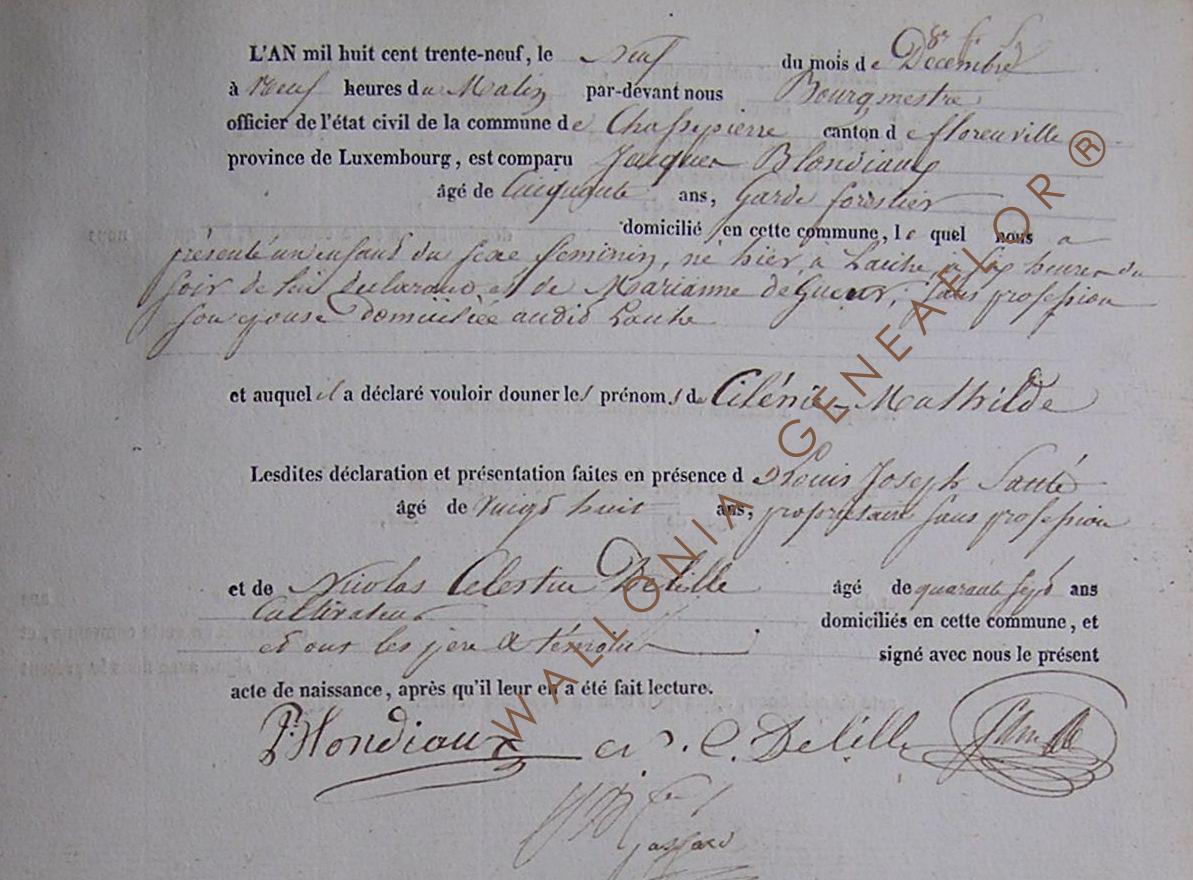 L'AN mil huit cent trente-neuf, le neuf du mois de Décembre
à neuf heures du Matin par-devant nous Bourgmestre
officier de l'état civil de la commune de Chassepierre canton de florenville
province de Luxembourg, est comparu Jacques Blondiaux
âgé de Cinquante ans, Garde forestier
domicilié en cette commune, le quel nous a
présenté un enfant du sexe feminin, né hier, à Laiche, à six heures du
soir de lui declarant et de Marianne deGueur, sans profession
son epouse domiciliée audit Laiche
et auquel il a déclaré vouloir donner les prénoms de Cilénie-Mathilde
Lesdites déclaration et présentation faites en présence d Louis Joseph Santé
âgé de vingt huit ans, propriétaire sans profession
et de Nicolas Celestin Delille âgé de quarante sept ans
Cultivateur domiciliés en cette commune, et
et ont les pere & témoins signé avec nous le présent
acte de naissance, après qu'il leur en a été fait lecture.
Blondiaux N. C. Delille
WALLONIA-GENEAFLOR ®